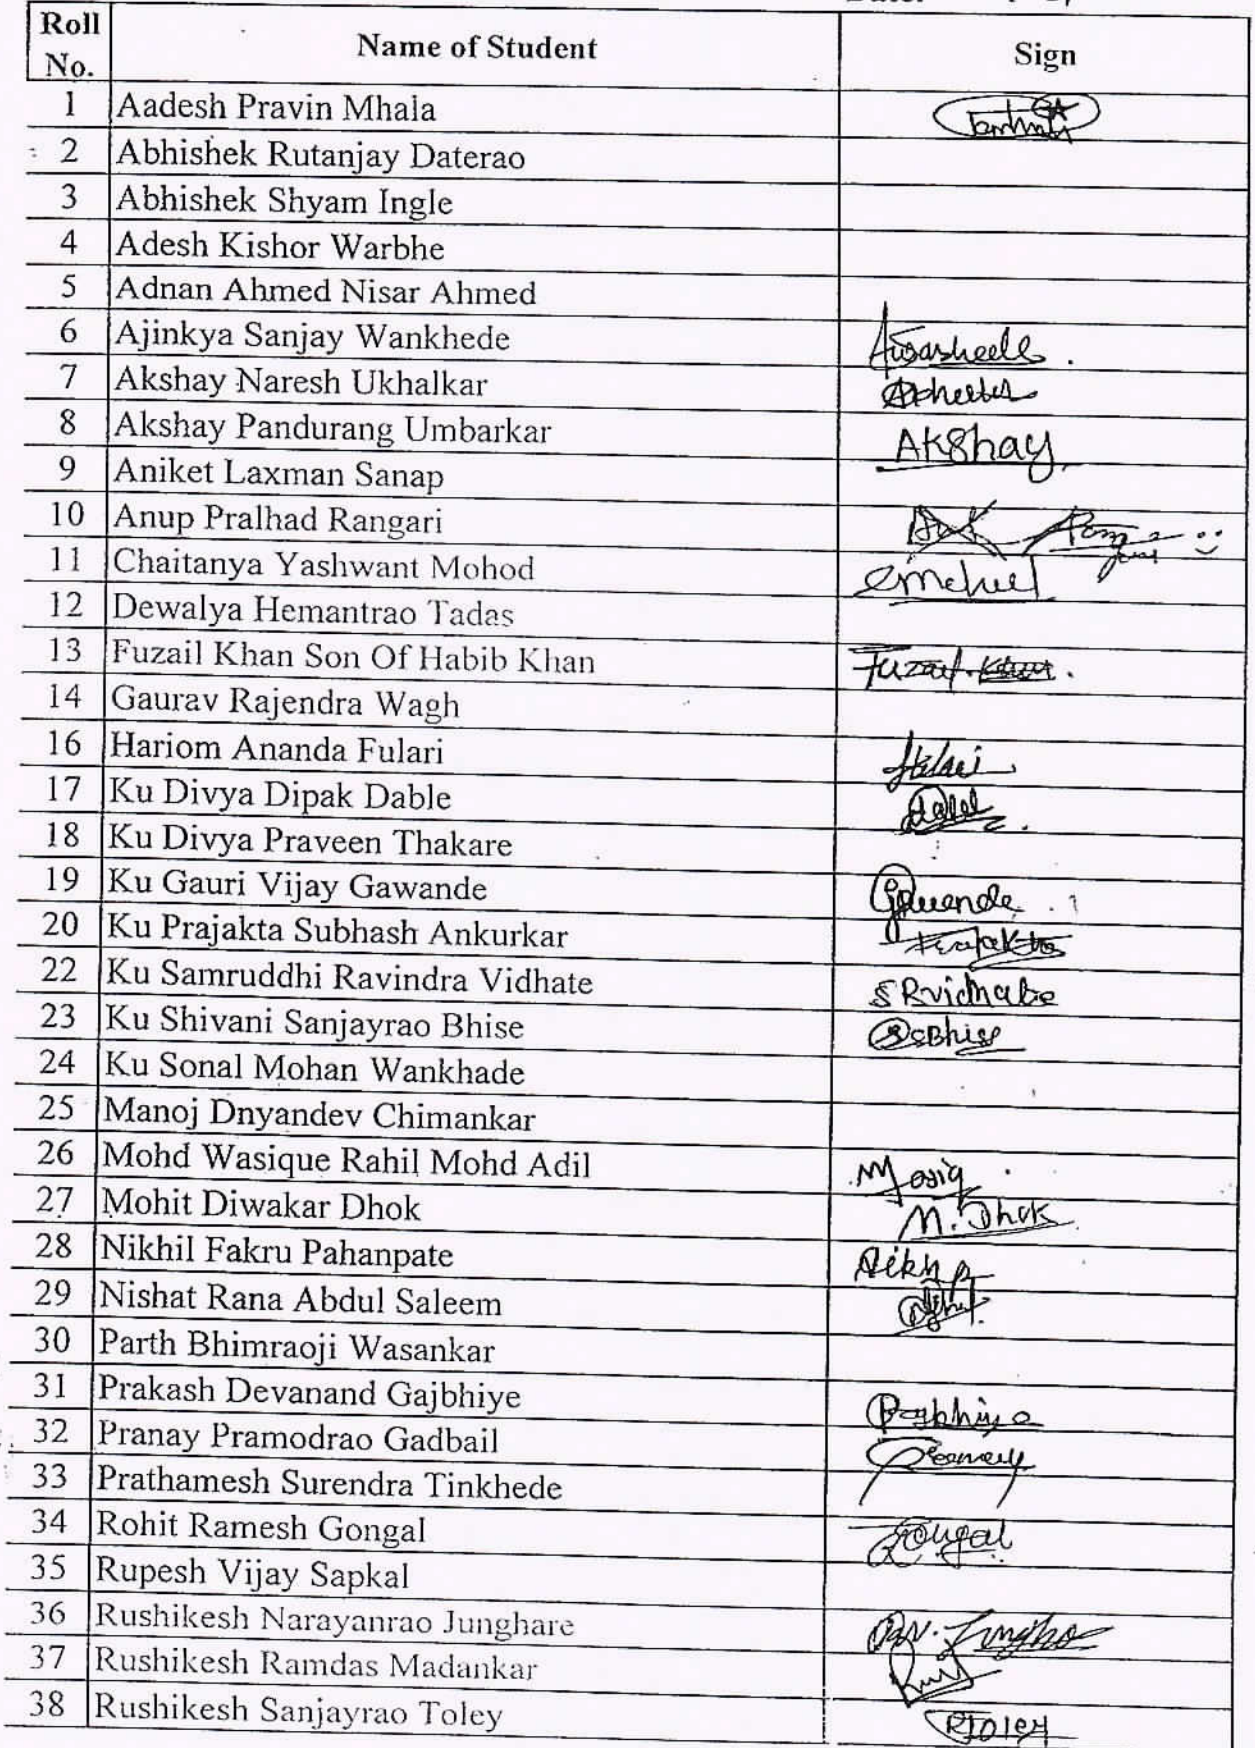 Roll No. Name of Student Sign
1 Aadesh Pravin Mhala
2 Abhishek Rutanjay Daterao
3 Abhishek Shyam Ingle
4 Adesh Kishor Warbhe
5 Adnan Ahmed Nisar Ahmed
6 Ajinkya Sanjay Wankhede
7 Akshay Naresh Ukhalkar
8 Akshay Pandurang Umbarkar Akshay
9 Aniket Laxman Sanap
10 Anup Pralhad Rangari
11 Chaitanya Yashwant Mohod
12 Dewalya Hemantrao Tadas
13 Fuzail Khan Son Of Habib Khan Fuzail Khan.
14 Gaurav Rajendra Wagh
16 Hariom Ananda Fulari
17 Ku Divya Dipak Dable
18 Ku Divya Praveen Thakare
19 Ku Gauri Vijay Gawande
20 Ku Prajakta Subhash Ankurkar Prajakta
22 Ku Samruddhi Ravindra Vidhate SRVidhate
23 Ku Shivani Sanjayrao Bhise SSBhise
24 Ku Sonal Mohan Wankhade
25 Manoj Dnyandev Chimankar
26 Mohd Wasique Rahil Mohd Adil
27 Mohit Diwakar Dhok M. Dhok
28 Nikhil Fakru Pahanpate
29 Nishat Rana Abdul Saleem
30 Parth Bhimraoji Wasankar
31 Prakash Devanand Gajbhiye
32 Pranay Pramodrao Gadbail
33 Prathamesh Surendra Tinkhede
34 Rohit Ramesh Gongal Gongal
35 Rupesh Vijay Sapkal
36 Rushikesh Narayanrao Junghare
37 Rushikesh Ramdas Madankar
38 Rushikesh Sanjayrao Toley RToley